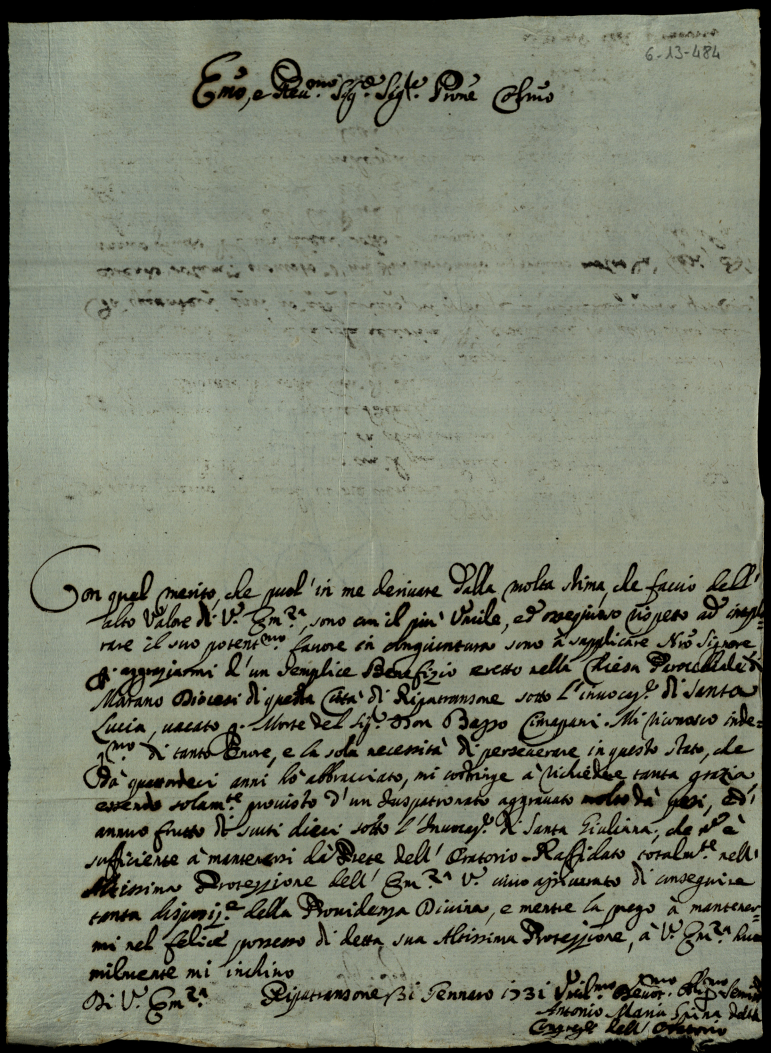 6-13-484
Emo, e Reu.mo Sig.e Sig.e Prone Colmo
Con quel merito, che puol' in me deriuare dalla molta stima, che faccio dell'
alto Valore di V.ra Em.za, sono con il più Vmile, ed ossequioso rispetto ad implo=
rare il suo potent.mo fauore in congiuntura sono à supplicare Nro Signore
p. aggraziarmi d'un semplice Benefizio eretto nella Chiesa Parocchiale di
Marano Diocesi di questa Città di Ripatransone sotto l'inuocaz.e di Santa
Lucia, uacato p. Morte del Sig.r Don Basso Cinepani. Mi riconosco inde=
g.mo di tanto Onore, e la sola necessità di perseuerare in questo stato, che
dà quattordeci anni hò abbracciato, mi costringe à richiedere tanta grazia
essendo solam.te prouisto d'un Juspatronato aggrauato molto dà pesi, ed'
annuo frutto di scuti dieci sotto l'Inuocaz.e di Santa Giuliana, che nõ è
sufficiente à mantenersi dà Prete dell' Oratorio. Raffidato totalm.te nell'
Altissima Protezzione dell' Em.za V.ra uiuo assicurato di conseguire
tanta disposiz.e della Prouidenza Diuina, e mentre la prego à mantener=
mi nel felice possesso di detta sua Altissima Protezzione, à V.ra Em.za hu=
milmente mi inchino
Di V.ra Em.za Ripatransone 31 Gennaro 1731 Vmil.mo Deuot.mo Oblig.mo Seruid.e
Antonio Maria Spina della
Congreg.e dell' Oratorio